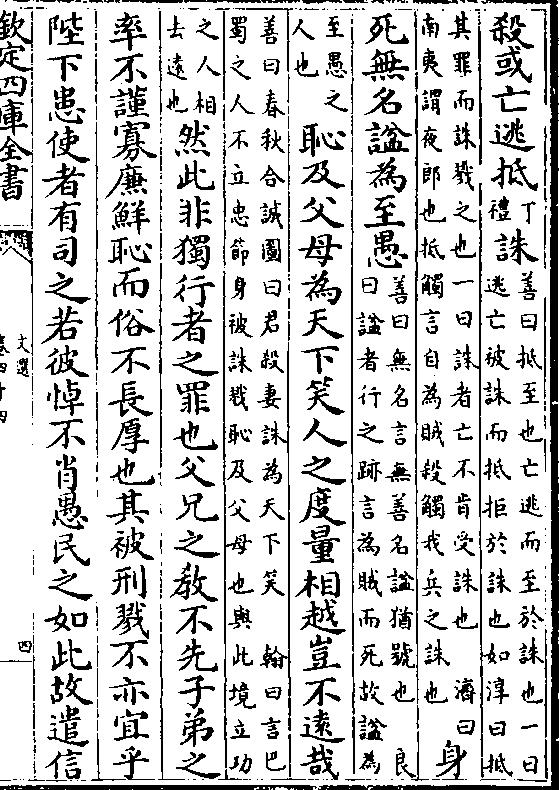 殺或亡逃抵丁禮誅善曰抵至也亡逃而至於誅也一曰
逃亡被誅而抵拒於誅也如淳曰抵
其罪而誅戮之也一曰誅者亡不肯受誅也 濟曰
南夷謂夜郎也抵觸言自為賊殺觸我兵之誅也
身
死無名諡為至愚善曰無名言無善名諡猶號也 良
曰諡者行之跡言為賊而死故諡為
至愚之
人也
恥及父母為天下笑人之度量相越豈不遠哉
善曰春秋合誠圖曰君殺妻誅為天下笑 翰曰言巴
蜀之人不立忠節身被誅戮恥及父母也與此境立功
之人相
去遠也
然此非獨行者之罪也父兄之教不先子弟之
率不謹寡廉鮮恥而俗不長厚也其被刑戮不亦宜乎
陛下患使者有司之若彼悼不肖愚民之如此故遣信
欽定四庫全書
文選
卷四十四
四